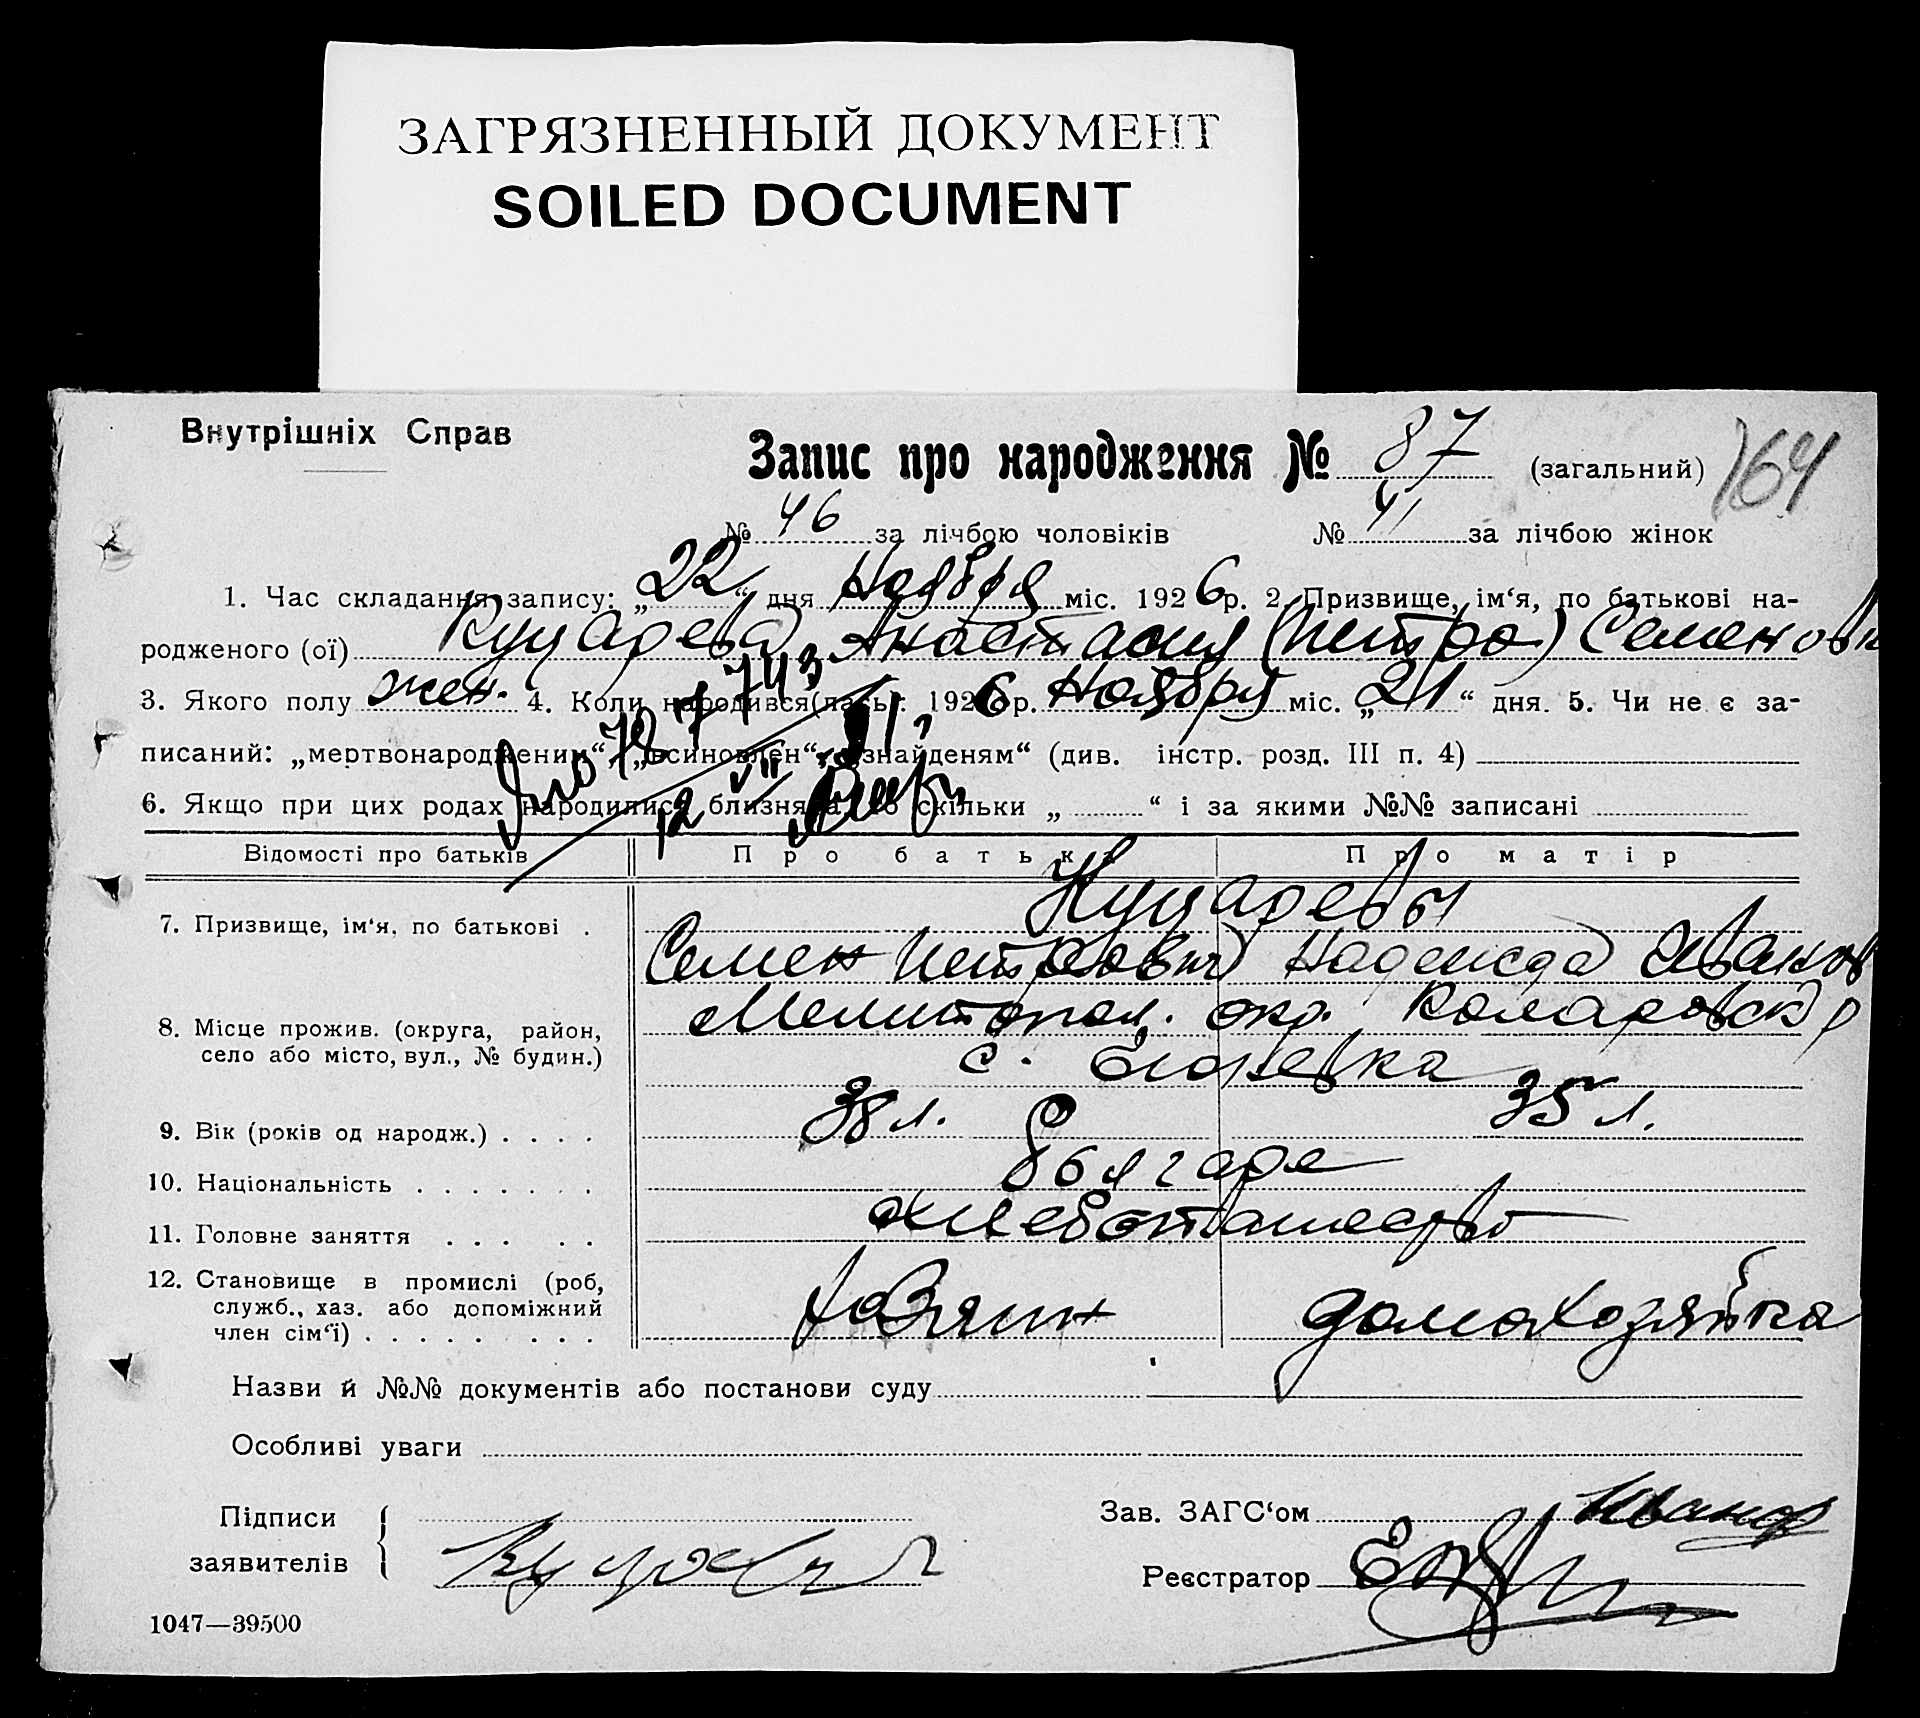 ЗАГРЯЗНЕННЫЙ ДОКУМЕНТ
SOILED DOCUMENT
Внутрішніх Справ
Запис про народження № 87 (загальний) 164
№ 46 за лічбою чоловіків № 41 за лічбою жінок
1. Час складання запису: „22“ дня Ноября міс. 1926 р. 2. Призвище, ім‘я, по батькові на-
родженого (ої) Куцарева Анастасия (Петро) Семенов
3. Якого полу жен. 4. Коли народився(лась): 1926 р. Ноября міс. „21“ дня. 5. Чи не є за-
писаний: „мертвонародженим“, „всиновлен“, „знайденям“ (див. інстр. розд. III п. 4)
6. Якщо при цих родах народилися близнята, то скільки „ “ і за якими №№ записані
Відомості про батьків Про батька Про матір
7. Призвище, ім‘я, по батькові . Куцаревы
Семен Петрович Надежда Иванов
8. Місце прожив. (округа, район, село або місто, вул., № будин.) Мелитопол. окр. Коларовск р
с.
9. Вік (років од народж.) . . . . 38 л. 35 л.
10. Національність . . . . . . . болгаре
11. Головне заняття . . . . . хлебопашество
12. Становище в промислі (роб, служб., хаз. або допоміжний член сім‘ї) . . . . . . . . хозяин домохозяйка
Назви й №№ документів або постанови суду
Особливі уваги
Підписи заявителів
Зав. ЗАГС‘ом Иванов
Реєстратор
1047—39500